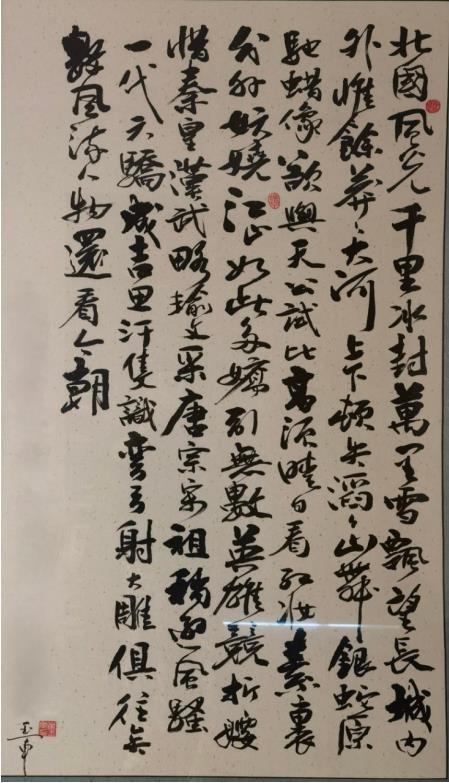 北國風光千里冰封萬里雪飄望長城内
外惟餘莽々大河上下頓失滔々山舞銀蛇原
馳蠟像欲與天公試比高須晴日看紅妝素裹
分外妖嬈江山如此多嬌引無數英雄競折腰
惜秦皇漢武略輸文采唐宗宋祖稍遜風騷
一代天驕成吉思汗隻識彎弓射大雕俱往矣
數風流人物還看今朝